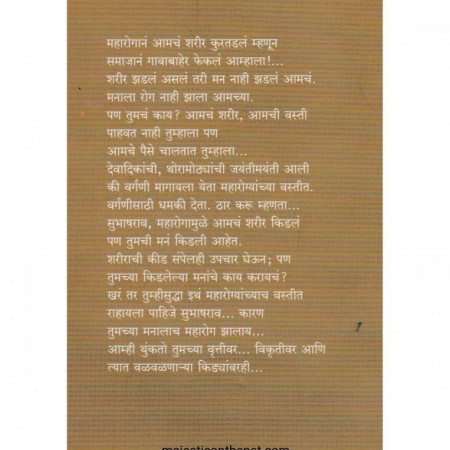 महारोगानं आमचं शरीर कुरतडलं म्हणून
समाजानं गावाबाहेर फेकलं आम्हाला!...
शरीर झडलं असलं तरी मन नाही झडलं आमचं.
मनाला रोग नाही झाला आमच्या.
पण तुमचं काय? आमचं शरीर, आमची वस्ती
पाहवत नाही तुम्हाला पण
आमचे पैसे चालतात तुम्हाला...
देवादिकांची, थोरामोठ्यांची जयंतीमयंती आली
की वर्गणी मागायला येता महारोग्यांच्या वस्तीत.
वर्गणीसाठी धमकी देता. ठार करू म्हणता...
सुभाषराव, महारोगामुळे आमचं शरीर किडलं
पण तुमची मनं किडली आहेत.
शरीराची कीड संपेलही उपचार घेऊन; पण
तुमच्या किडलेल्या मनांचे काय करायचं?
खरं तर तुम्हीसुद्धा इथं महारोग्यांच्याच वस्तीत
राहायला पाहिजे सुभाषराव... कारण
तुमच्या मनालाच महारोग झालाय...
आम्ही थुंकतो तुमच्या वृत्तीवर... विकृतीवर आणि
त्यात वळवळणाऱ्या किड्यांवरही...